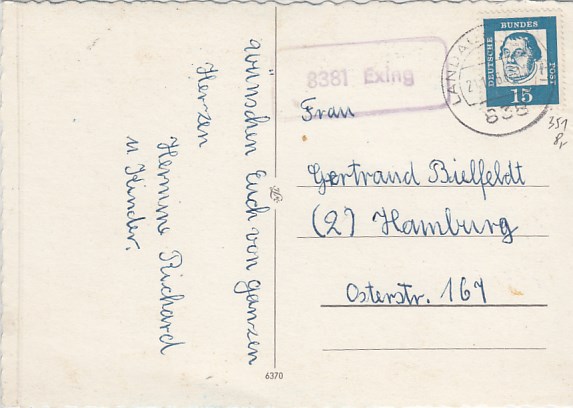 wünschen Euch von ganzen
Herzen
Hermine Richard
u Kinder.
8381 Exing
DEUTSCHE BUNDESPOST
15
LANDAU
351
Frau
Gertrand Bielfeldt
(2) Hamburg
Osterstr. 167
6370